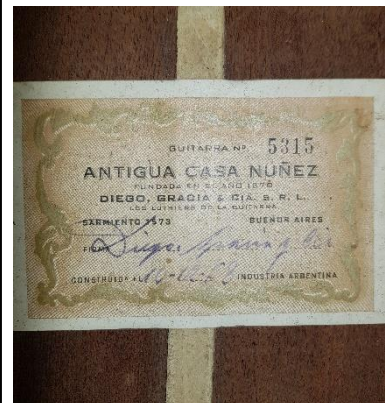 GUITARRA Nº 5315
ANTIGUA CASA NUÑEZ
FUNDADA EN EL AÑO 1870
DIEGO, GRACIA & CIA. S. R. L.
LOS LUTHIERS DE LA GUITARRA
SARMIENTO 1573 BUENOS AIRES
FIRMA Diego, Gracia y Cia
CONSTRUIDA EL INDUSTRIA ARGENTINA